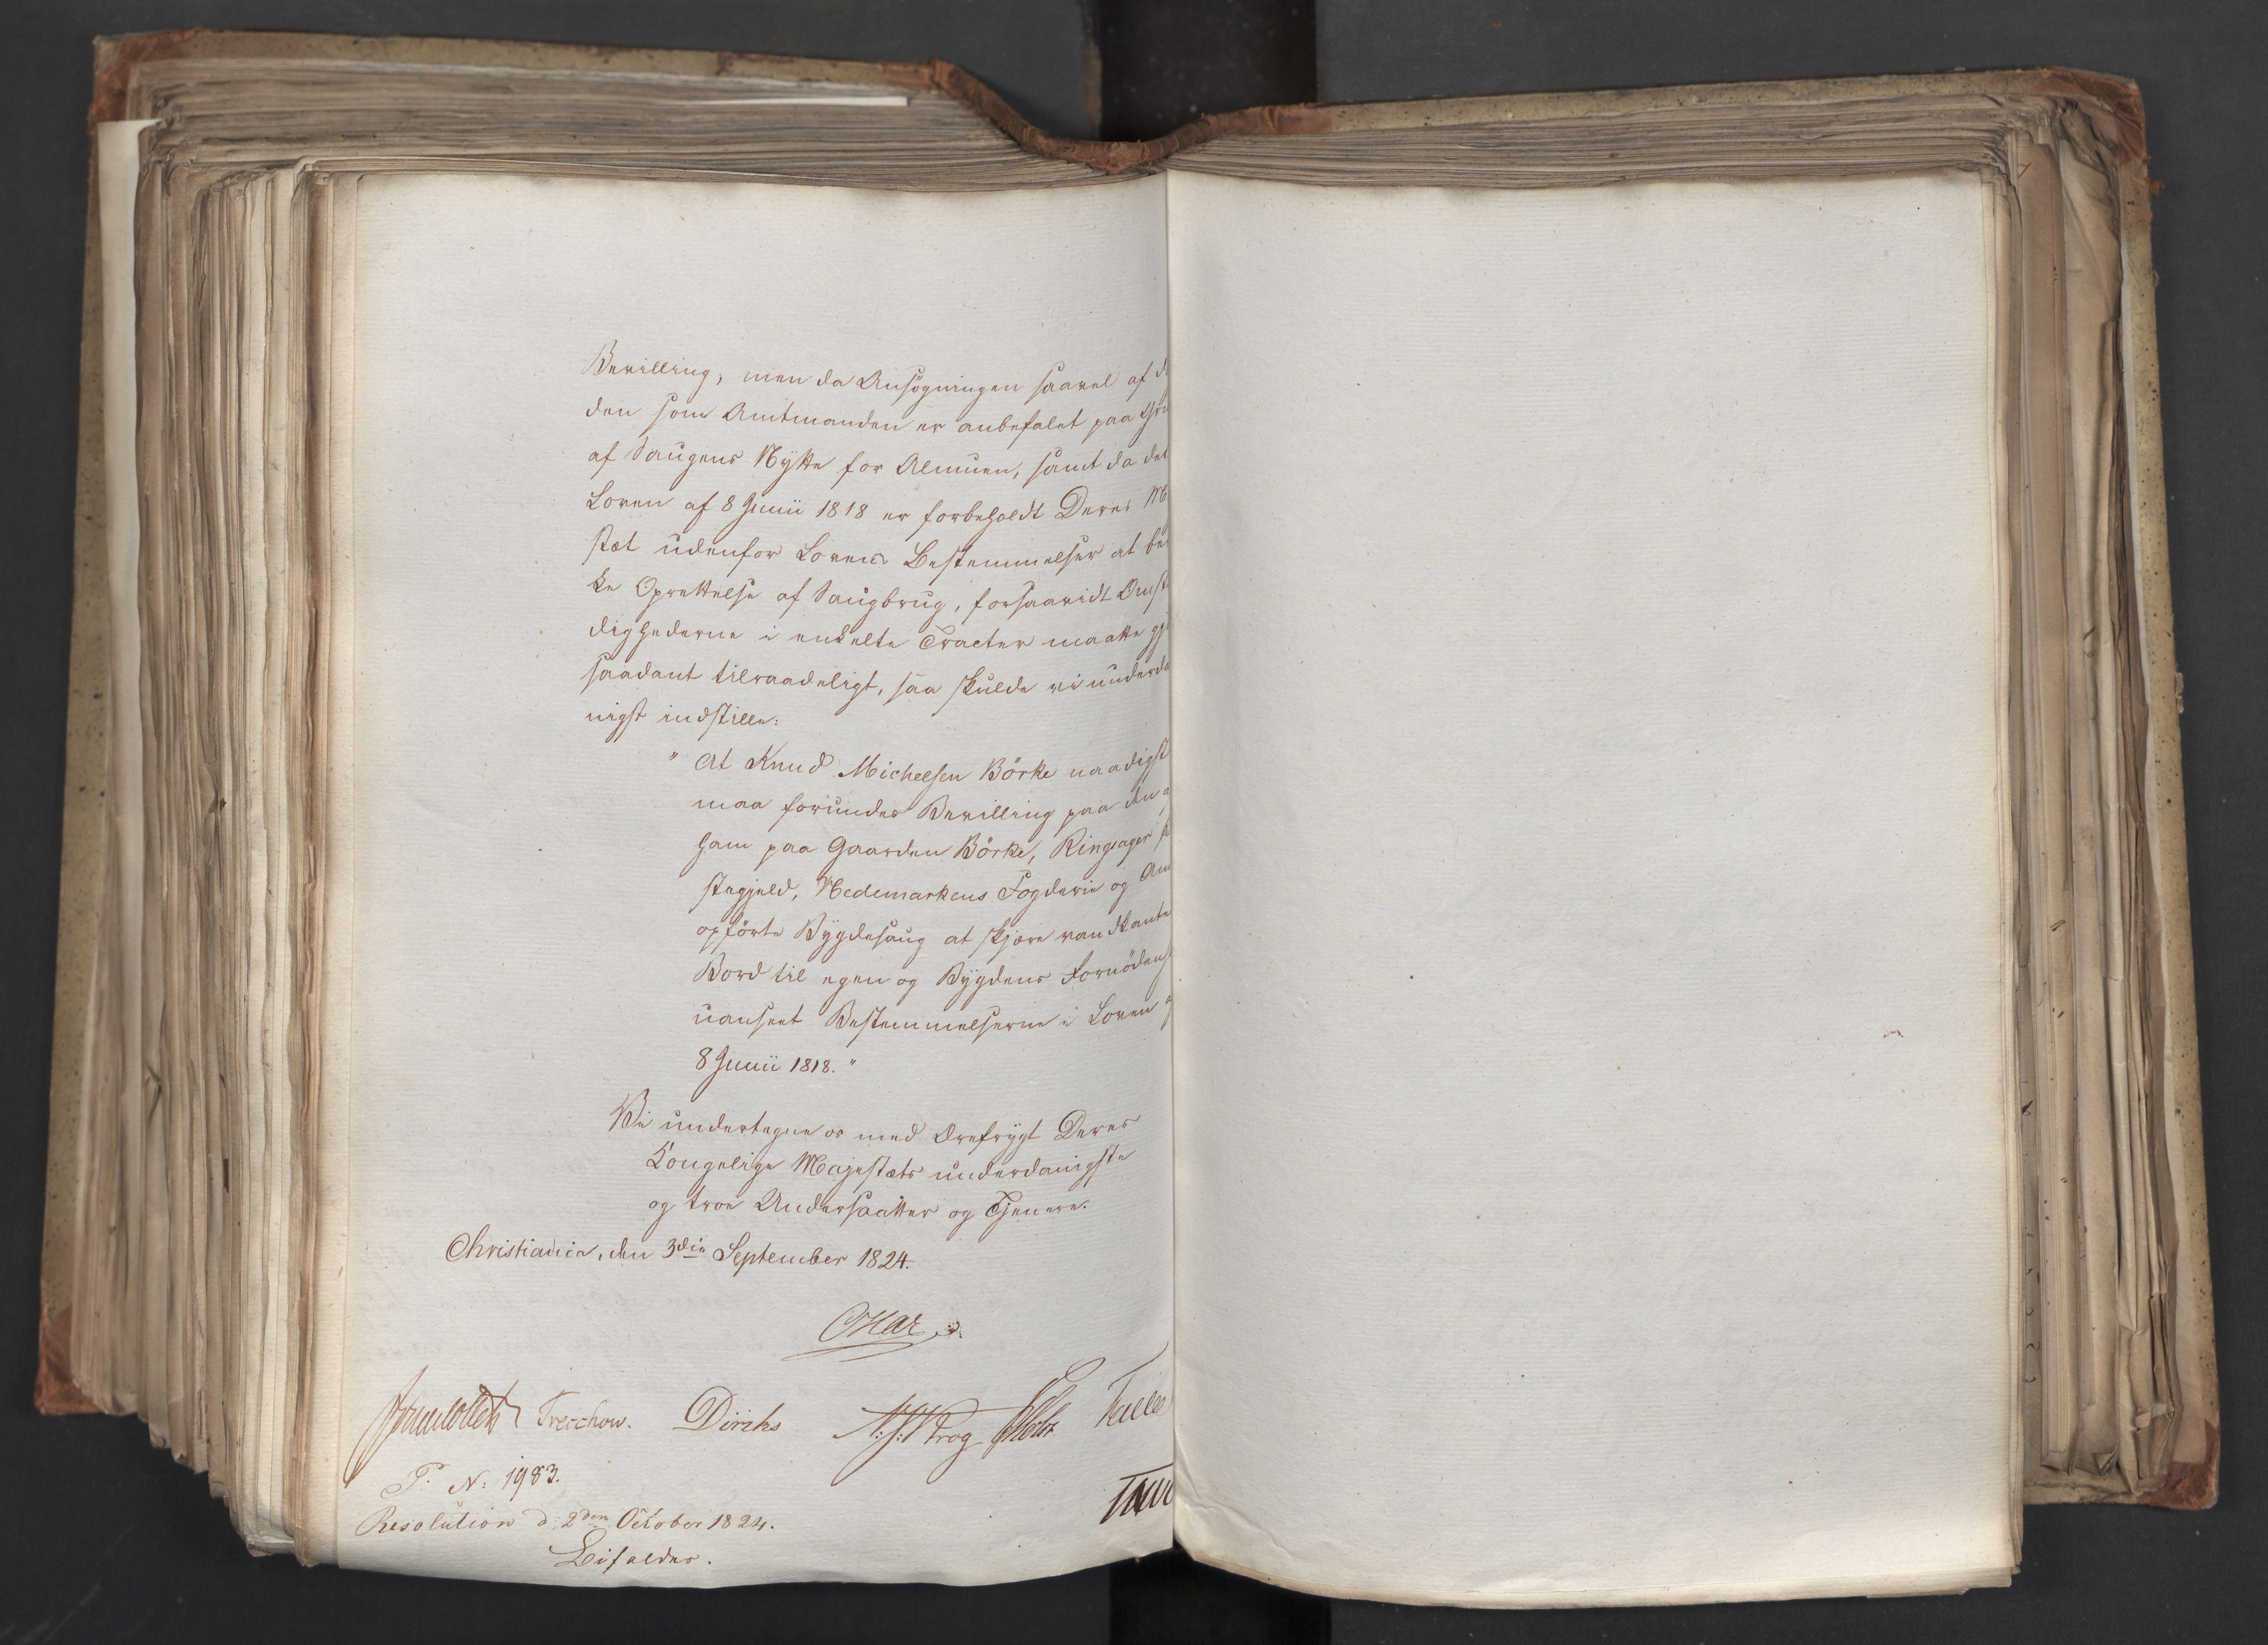 Bevilling; men da Ansøgningen saavel af
den som Amtmanden er anbefalet paa Gru
af Saugens Nÿtte for Almuen, samt da det
Loven af 8 Junii 1818 er forbeholdt Deres M
stæt udenfor Lovens Bestemmelser at be
ke Oprettelse af Saugbrug, forsaavidt Omst
dighederne i enkelte Tracter maatte gj
saadant tilraadeligt, saa skulde vi underda
nigst indstille:
" At Knud Michelsen Börke naadigst
maa forundes Bevilling paa den a
ham paa Gaarden Börke, Ringsager
stegjeld, Hedemarkens Fogderie og Am
opförte Bÿgdesaug at skjære vandkante
Bord til egen og Bÿgdens Fornödens
uanseet Bestemmelserne i Loven
8 Junii 1818. "
Vi undertegne os med Ærefrÿgt Deres
Kongelige Majestæts underdanigste
og troe Undersaatter og Tjenere.
Christiania, den 3die September 1824.
Oscar
Treschow. Diriks
P. N: 1983.
Resolution d: 2den October 1824.
Bifaldes.